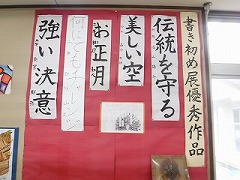 書き初め展優秀作品
伝統を守る
美しい空
お正月
何にでもチャレンジ
強い決意